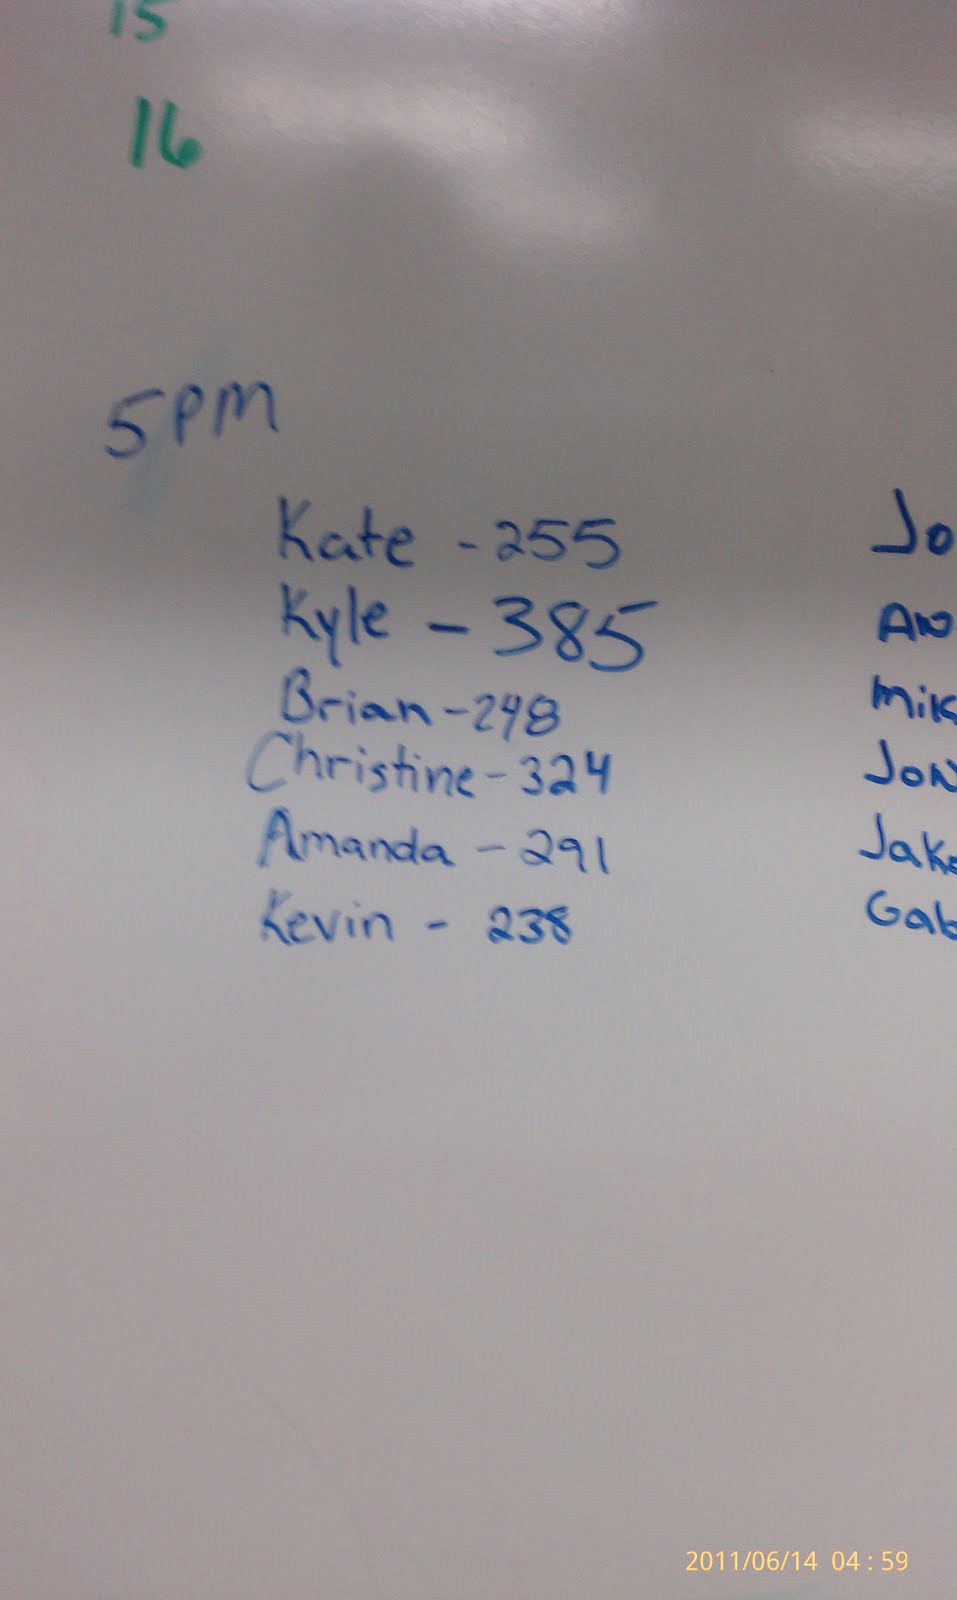 15
16
5PM
Kate - 255
Kyle - 385
Brian - 248
Christine - 324
Amanda - 291
Kevin - 238
Jo
An
Mik
Jon
Jake
Gab
2011/06/14 04:59